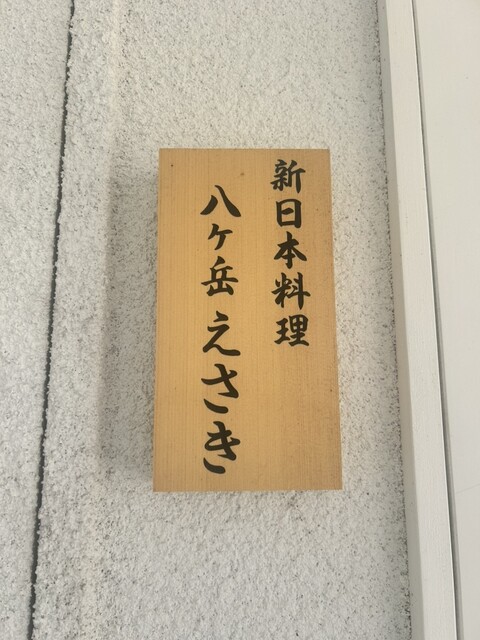 新日本料理
八ヶ岳 えさき